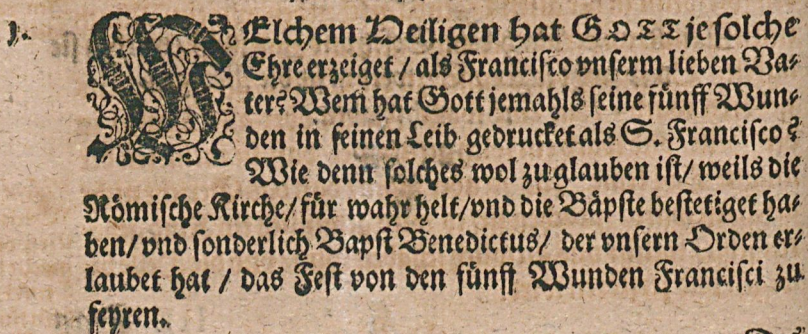 1. WElchem Heiligen hat GOTT je solche
Ehre erzeiget / als Francisco vnserm lieben Va⸗
ter? Wem hat Gott jemahls seine fünff Wun⸗
den in seinen Leib gedrucket als S. Francisco?
Wie denn solches wol zuglauben ist/ weils die
Römische Kirche/ für wahr helt/ vnd die Bäpste bestetiget ha⸗
ben/ vnd sonderlich Bapst Benedictus/ der vnsern Orden er⸗
laubet hat / das Fest von den fünff Wunden Francisci zu
feyren.